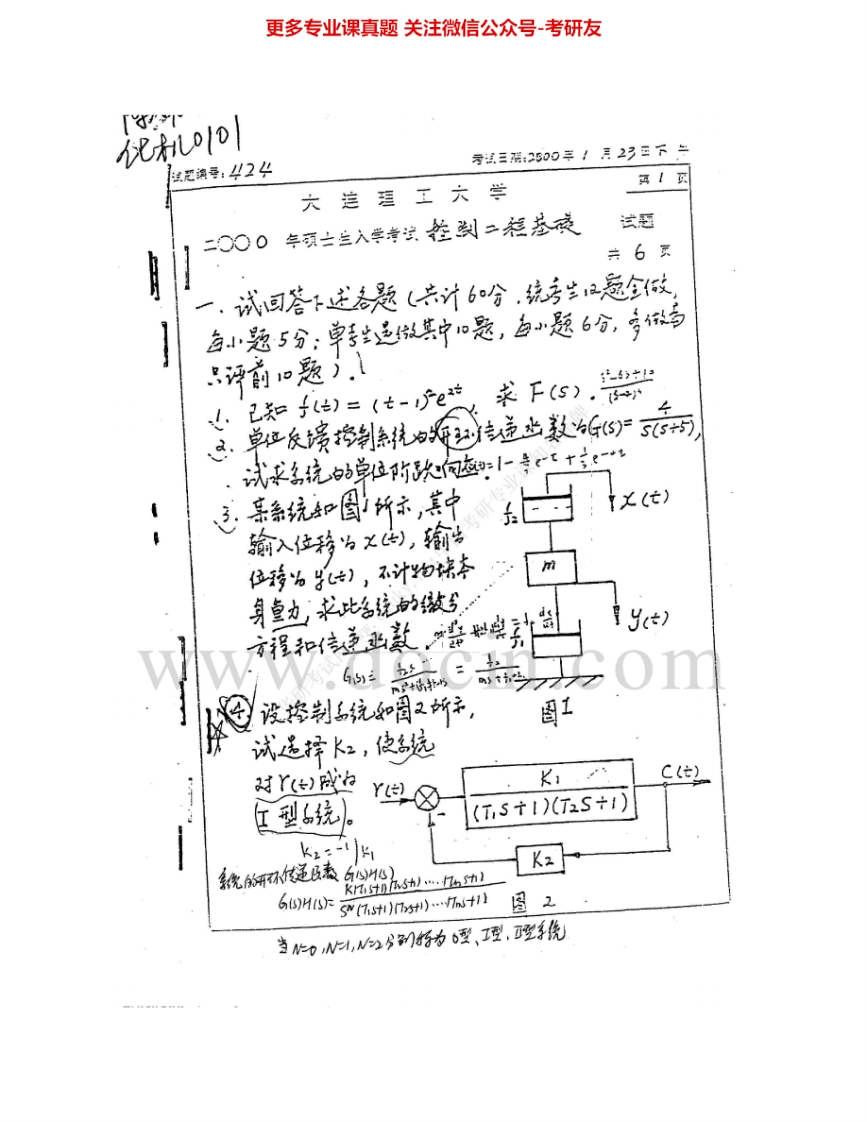 更多专业课真题 关注微信公众号-考研友
化机0101
试题编号:424
考试日期:2000年1月23日下午
大连理工大学
第1页
二〇〇〇年硕士生入学考试 控制工程基础 试题
共6页
一、试回答下述各题(共计60分,统考生12题全做,
每小题5分;单考生选做其中10题,每小题6分,多做者
只评前10题).
1. 已知 f(t)=(t-1)²e²ᵗ, 求 F(s).
2. 单位反馈控制系统的开环传递函数为G(s)= 4/(s(s+5)),
试求系统的单位阶跃响应
3. 某系统如图1所示,其中
输入位移为x(t),输出
位移为y(t),不计物块本
身重力,求此系统的微分
方程和传递函数.
f₂
x(t)
m
y(t)
f₁
图1
www.docin.com
4. 设控制系统如图2所示,
试选择K₂,使系统
对r(t)成为
I型系统。
r(t)
-
K₁/((T₁S+1)(T₂S+1))
C(t)
K₂
图 2
K₂=-1/K₁
系统的开环传递函数 G(s)H(s)
当N=0,N=1,N=2分别称为0型、I型、II型系统